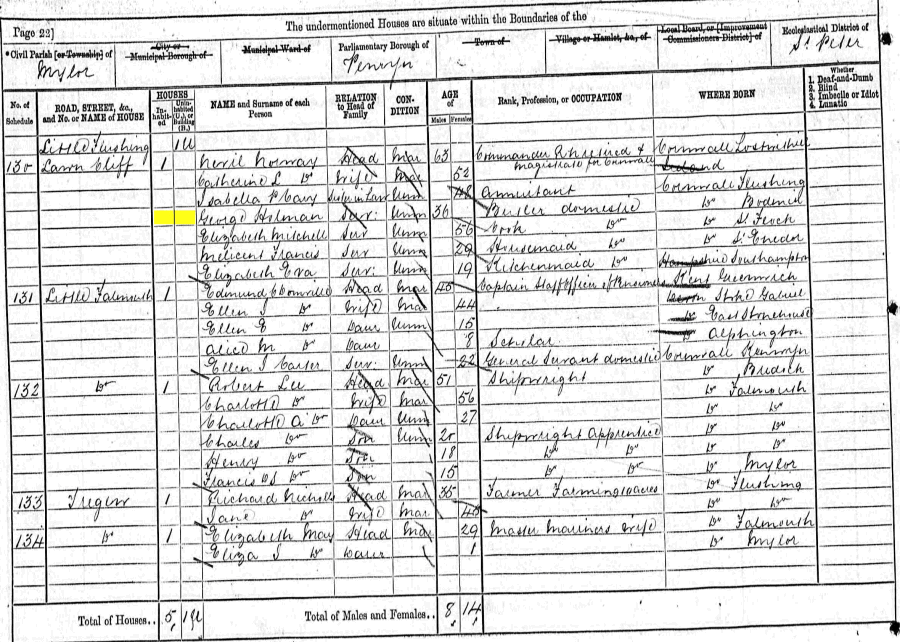 Page 22] The undermentioned Houses are situate within the Boundaries of the
*Civil Parish [or Township] of Mylor
City or Municipal Borough of
Municipal Ward of
Parliamentary Borough of Penryn
Town of
Village or Hamlet, &c., of
Local Board, or [Improvement Commissioners District] of
Ecclesiastical District of St Peter
No. of Schedule
ROAD, STREET, &c., and No. or NAME of HOUSE
HOUSES
Inhabited
Uninhabited (U.), or Building (B.)
NAME and Surname of each Person
RELATION to Head of Family
CONDITION
AGE of
Males Females
Rank, Profession, or OCCUPATION
WHERE BORN
Whether
1. Deaf-and-Dumb
2. Blind
3. Imbecile or Idiot
4. Lunatic
Little Flushing 1U
130 Lawn Cliff 1 Nevil Norway Head Mar 63 Commander RN retired & magistrate for Cornwall Cornwall Lostwithiel
Catherine L Do Wife Mar 52 Ireland
Isabella P Cary Sister in Law Unm 48 Annuitant Cornwall Flushing
George Holman Serv: Unm 36 Butler domestic Do Bodmin
Elizabeth Mitchell Serv Unm 56 Cook Do Do St Feock
Melicent Francis Serv Unm 29 Housemaid Do Do St Enedor
Elizabeth Eva Serv: Unm 19 Kitchenmaid Do Hampshire Southampton
131 Little Falmouth 1 Edmund C Head Mar 45 Captain Staff Officer of Pensioners Kent Greenwich
Ellen S Do Wife Mar 44 Devon Stoke Gabriel
Ellen E Do Daur Unm 15 Do East Stonehouse
Alice M Do Daur 8 Scholar Do Alphington
Ellen J Carter Serv. Unm 22 General Servant domestic Cornwall Kenwyn
132 Do 1 Robert Lee Head Mar 51 Shipwright Do Budock
Charlotte Do Wife Mar 56 Do Falmouth
Charlotte A Do Daur Unm 27 Do Do
Charles Do Son Unm 20 Shipwright Apprentice Do Do
Henry Do Son 18 Do Do Do Do
Francis Do Son 15 Do Do Do Mylor
133 Tregew 1 Richard Nicholls Head Mar 35 Farmer Farming acres Do Flushing
Jane Do Wife Mar 40 Do Do
134 Do 1 Elizabeth May Head Mar 29 Master Mariners Wife Do Falmouth
Eliza J Do Daur 1 Do Mylor
Total of Houses.. 5 1U
Total of Males and Females.. 8 14